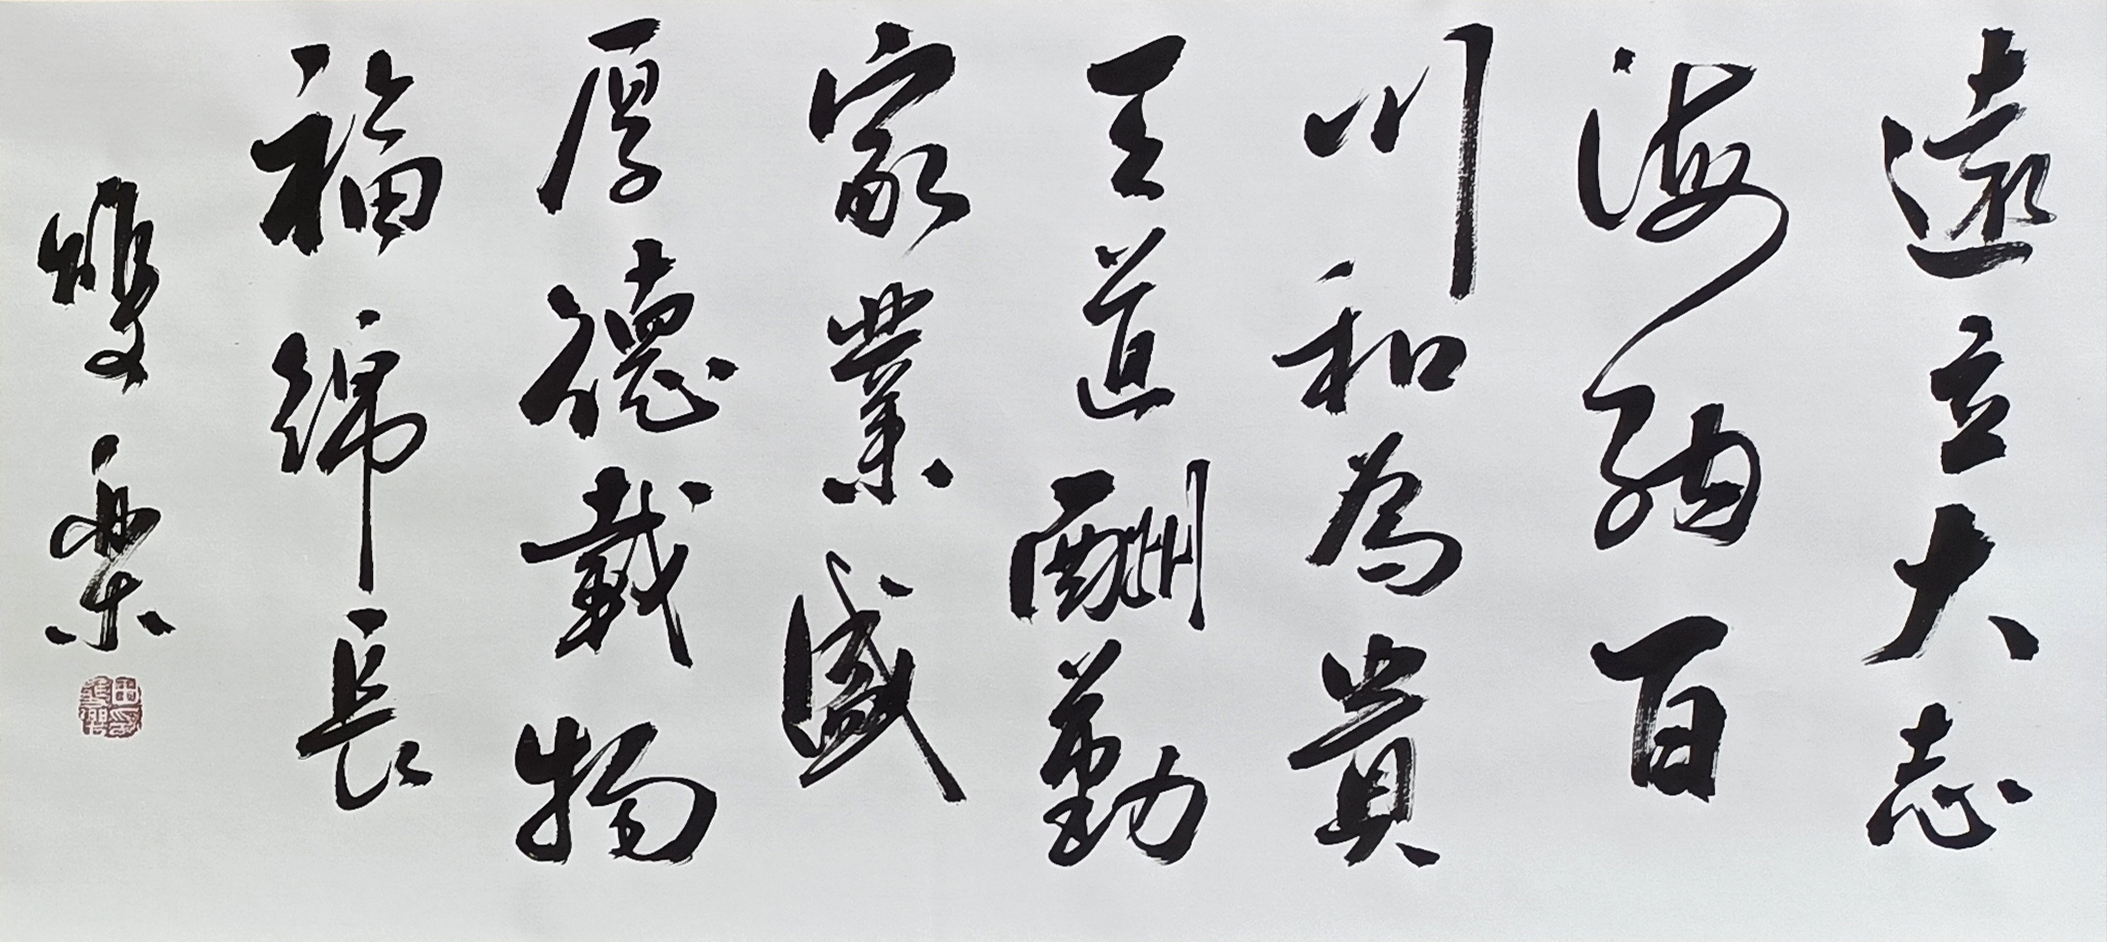 遠立大志
海納百
川和為貴
天道酬勤
家業盛
厚德載物
福綿長